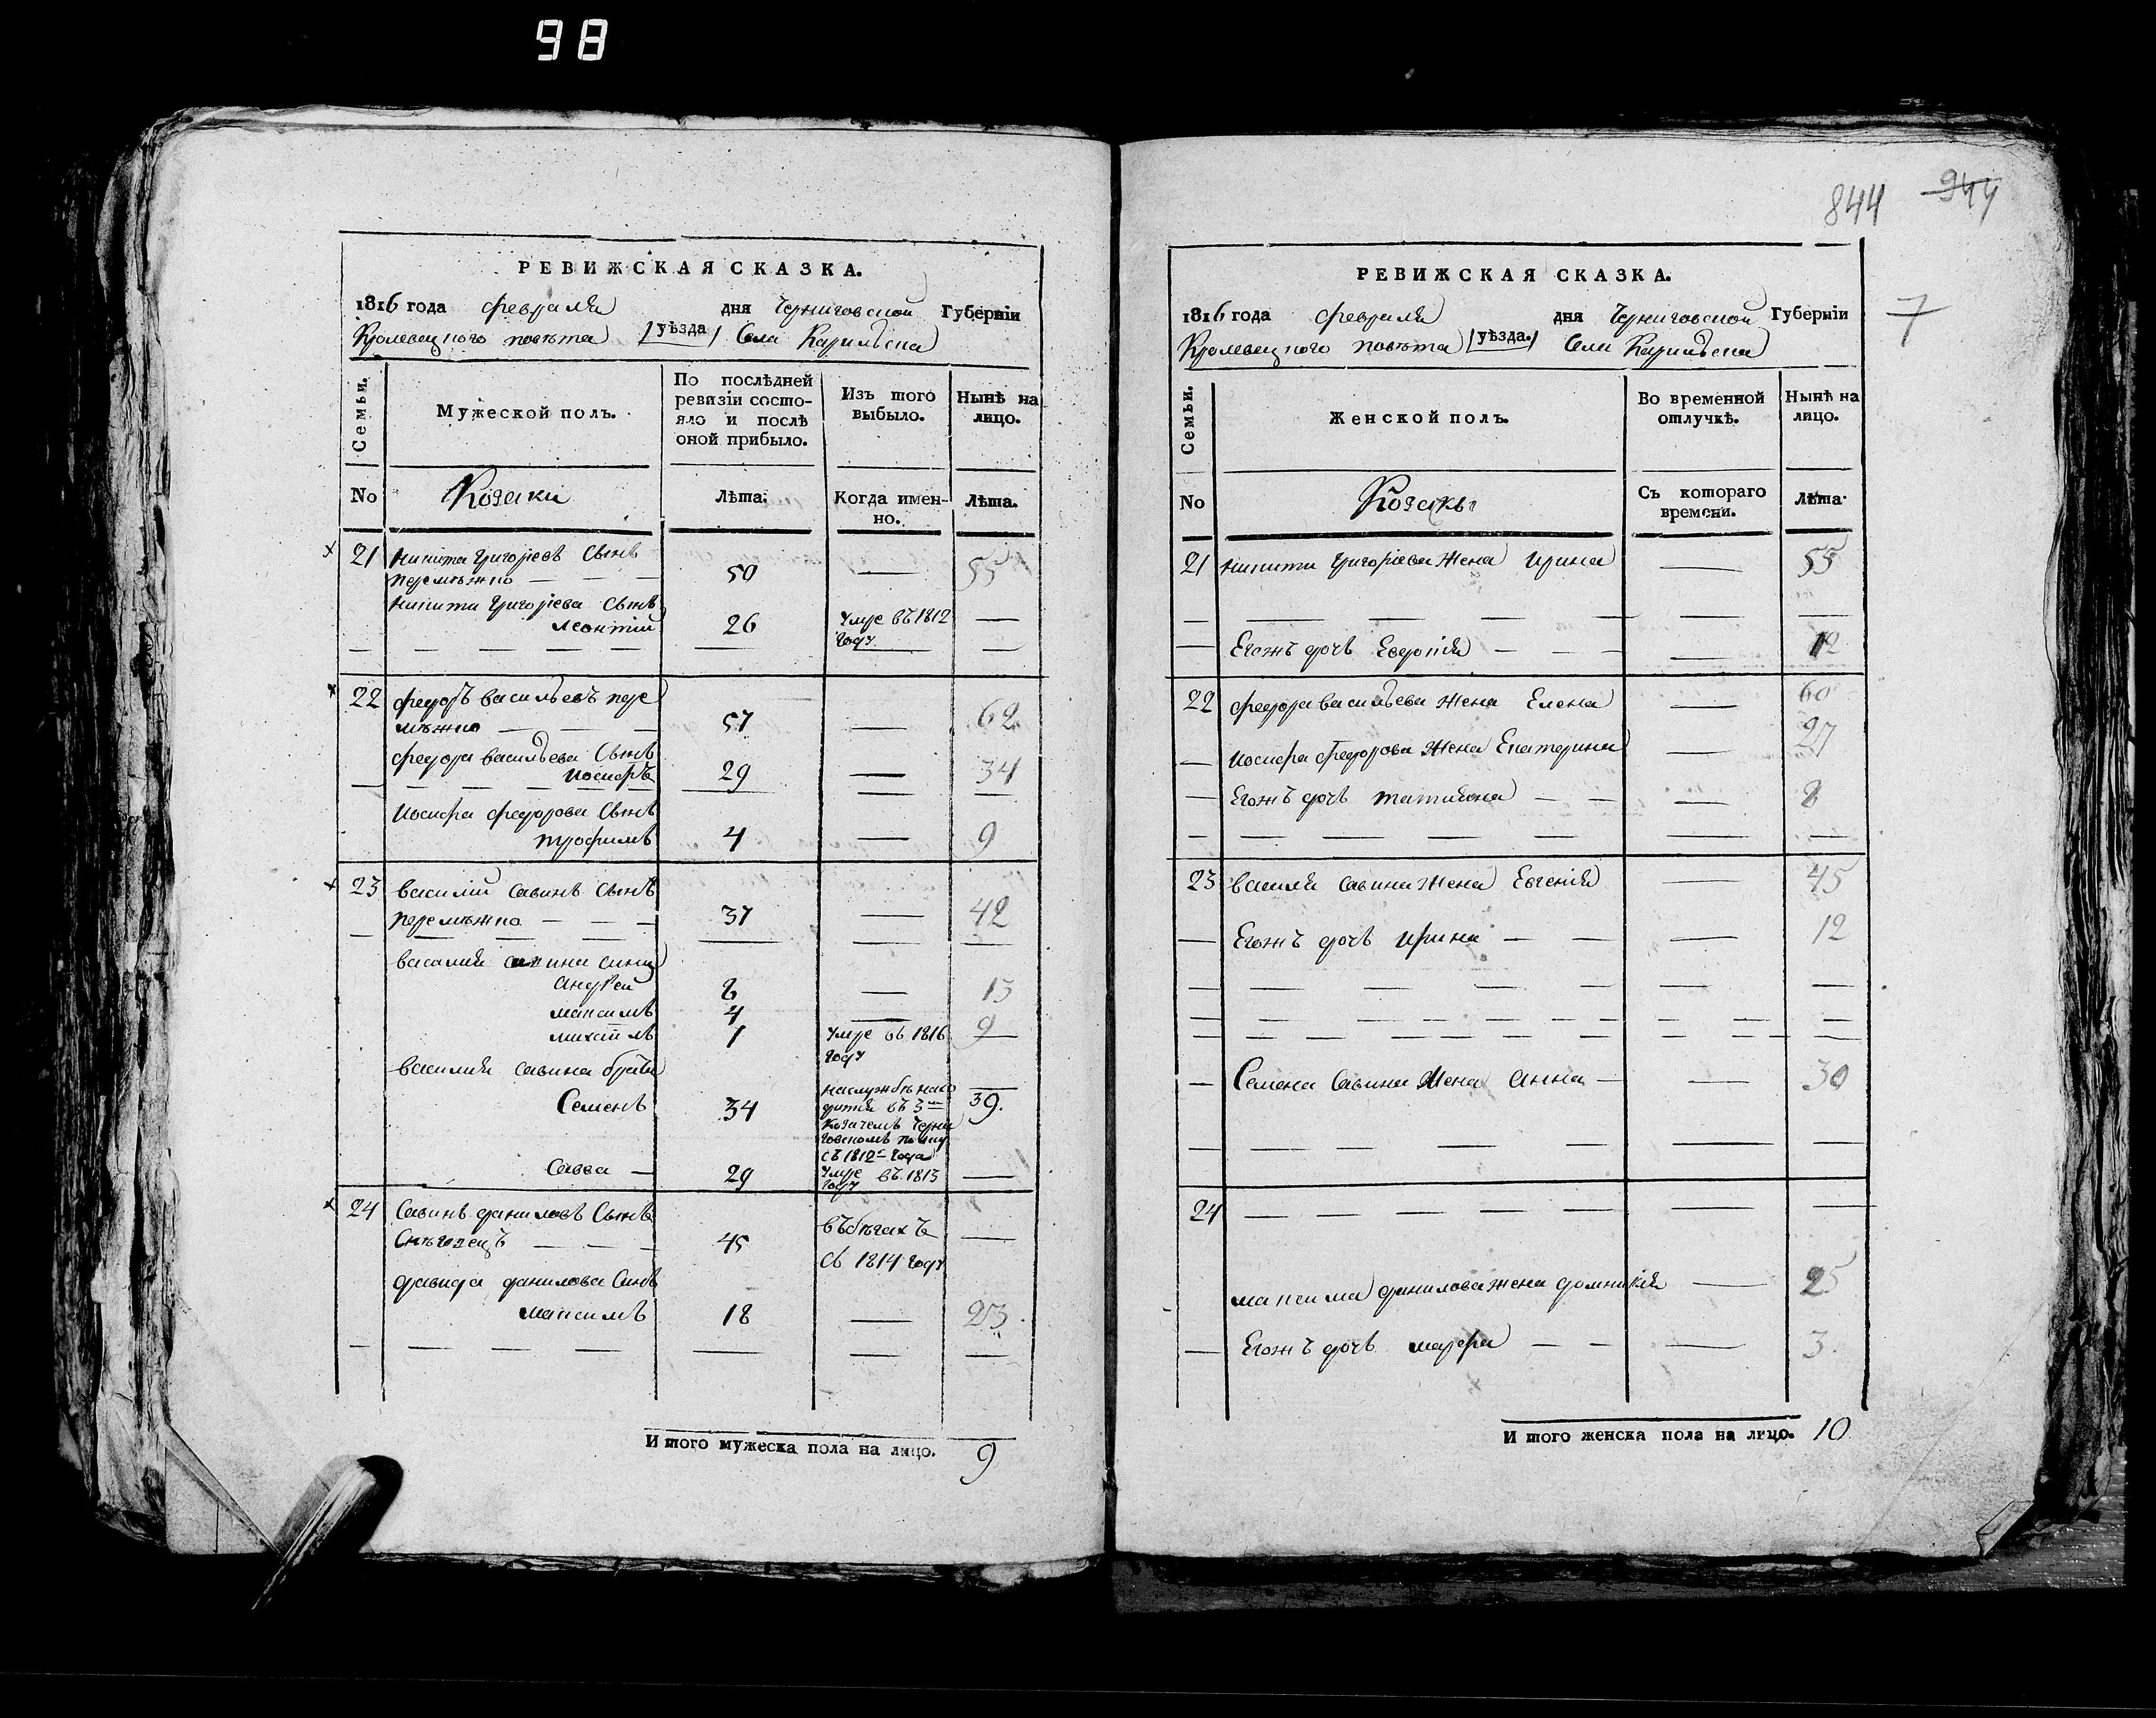 98
РЕВИЖСКАЯ СКАЗКА.
1816 года февраля дня Черниговской Губерніи
Кролевецкого повѣта уѣзда Села Карилъска
Семьи.
Мужеской полъ.
По послѣдней
ревизіи состо-
яло и послѣ
оной прибыло.
Изъ того
выбыло.
Нынѣ на
лицо.
No Козаки Лѣта. Когда имен-
но. Лѣта.
21 Никита Григоріевъ Сынъ
50 — 55
Никита Григоріева Сынъ
Леонтій 26 Умре въ 1812
году —
22 Федоръ Васильевъ пере
мѣжко 57 — 62
Федора Васильева Сынъ
Іосифъ 29 — 34
Іосифа Федорова Сынъ
Трофимъ 4 — 9
23 Василій Савинъ Сынъ
Перемѣжко 37 — 42
Василия Савина Сини
Андрей 8 — 13
Максимъ 4 — 9
Михаилъ 1 Умре въ 1816
году —
Василия Савина братья
Семенъ 34 на службѣ нахо
дится въ 3м 39.
Козачемъ Черни
говскомъ полку
съ 1812го года
Савва — 29 Умре въ 1813
году —
24 Савинъ Даниловъ Сынъ
45 въ бѣгахъ
съ 1814 году —
Давида Данилова Синъ
Максимъ 18 — 23
Итого мужеска пола на лицо. 9
844 944
7
РЕВИЖСКАЯ СКАЗКА.
1816 года февраля дня Черниговской Губерніи
Кролевецкого повѣта уѣзда. Села Карилъска
Семьи.
Женской полъ.
Во временной
отлучкѣ.
Нынѣ на
лицо.
No Козаки Съ котораго
времени. Лѣта
21 Никити Григоріева Жена Ирина — 55
Егожъ дочь Евдокія — 12
22 Федора Васильева Жена Елена — 60
Іосифа Федорова Жена Екатерина — 27
Егожъ дочь Татияна — 8
23 Василия Савина Жена Евгенія — 45
Егожъ дочь Ирина — 12
Семена Савина Жена Анна — 30
24
Максима Данилова жена Домникія — 25
Егожъ дочь Марфа — 3.
Итого женска пола на лицо. 10